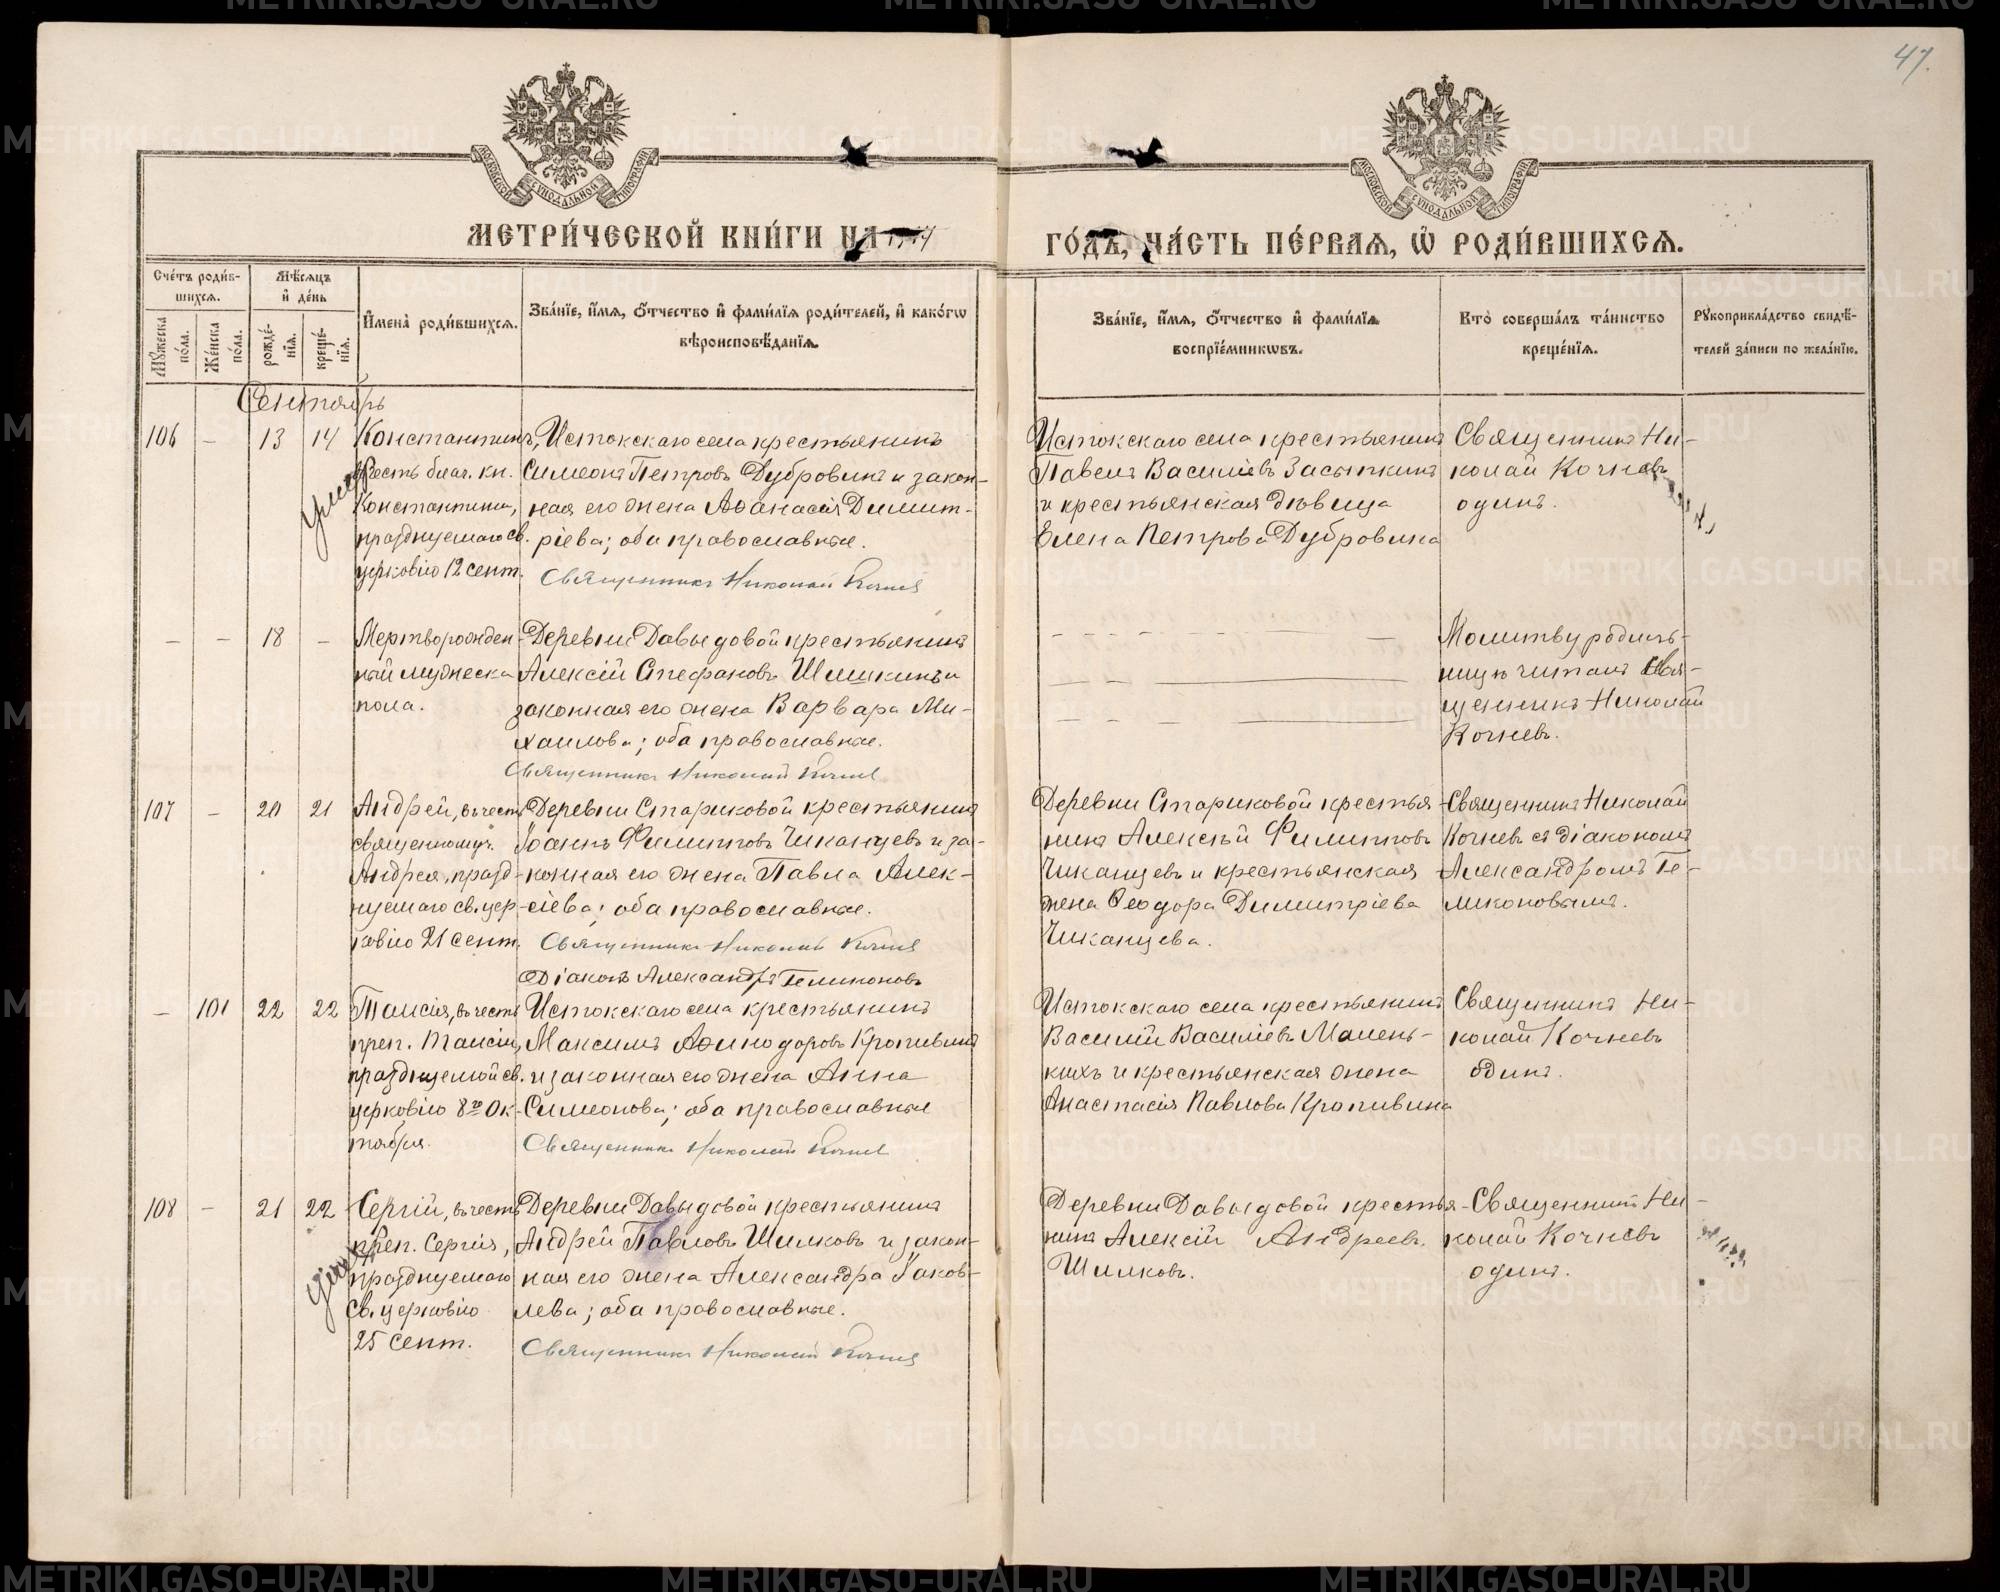 47.
МОСКОВСКОЙ СѴНОДАЛЬНОЙ ТИПОГРАФІИ
МОСКОВСКОЙ СѴНОДАЛЬНОЙ ТИПОГРАФІИ
МЕТРИ́ЧЕСКОЙ КНИ́ГИ НА
ГО́ДЪ, ЧА́СТЬ ПЕ́РВАЯ, Ѡ҆ РОДИ́ВШИХСЯ.
Сче́тъ роди́в-
шихся.
Мѣ́сяцъ
и҆ де́нь
Мꙋ́жеска по́ла.
Же́нска по́ла.
рожде́-
нїя.
креще́-
нїя.
И҆мена̀ роди́вшихся.
Зва́нїе, и҆́мя, ѻ҆́тчество и҆ фами́лїя роди́телей, и҆ како́гѡ
вѣроисповѣ́данїя.
Зва́нїе, и҆́мя, ѻ҆́тчество и҆ фами́лїя
воспрїе́мникѡвъ.
Кто̀ соверша́лъ та́инство
креще́нїя.
Рꙋкоприкла́дство свидѣ́-
телей за́писи по жела́нїю.
Сентябрь
106 – 13 14
Константинъ,
въ честь благ. кн.
Константина,
празднуемаго св.
церковію 12 сент.
Умеръ
Истокскаго села крестьянинъ
Симеонъ Петровъ Дубровинъ и закон-
ная его жена Аѳанасія Димит-
ріева; оба православные.
Священникъ Николай Кочнев
Истокскаго села крестьянинъ
Павелъ Василіевъ Засыпкинъ
и крестьянская дѣвица
Елена Петрова Дубровина
Священникъ Ни-
колай Кочневъ
одинъ.
– – 18 –
Мертворожден-
ный мужеска
пола.
Деревни Давыдовой крестьянинъ
Алексій Стефановъ Шишкинъ и
законная его жена Варвара Ми-
хаилова; оба православные.
Священникъ Николай Кочнев
Молитву родиль-
ницѣ читалъ Свя-
щенникъ Николай
Кочневъ.
107 – 20 21
Андрей, въ честь
священномуч.
Андрея, празд-
нуемаго св. цер-
ковію 21 сент.
Деревни Стариковой крестьянинъ
Іоаннъ Филипповъ Чиканцевъ и за-
конная его жена Павла Алек-
сіева; оба православные.
Священникъ Николай Кочнев
Діаконъ Александръ Геликоновъ
Деревни Стариковой крестья-
нинъ Алексѣй Филипповъ
Чиканцевъ и крестьянская
жена Ѳеодора Димитріева
Чиканцева.
Священникъ Николай
Кочневъ съ діакономъ
Александромъ Ге-
ликоновымъ.
– 101 22 22
Таисія, въ честь
преп. Таисіи,
празднуемой св.
церковію 8го Ок-
тября.
Истокскаго села крестьянинъ
Максимъ Аѳинодоровъ Кропивинъ
и законная его жена Анна
Симеонова; оба православные
Священникъ Николай Кочнев
Истокскаго села крестьянинъ
Василій Василіевъ Малень-
кихъ и крестьянская жена
Анастасія Павлова Кропивина
Священникъ Ни-
колай Кочневъ
одинъ.
108 – 21 22
Сергій, въ честь
преп. Сергія,
празднуемаго
св. церковію
25 сент.
Умеръ
Деревни Давыдовой крестьянинъ
Андрей Павловъ Шилковъ и закон-
ная его жена Александра Іаков-
лева; оба православные.
Священникъ Николай Кочнев
Деревни Давыдовой крестья-
нинъ Алексій Андреевъ
Шилковъ.
Священникъ Ни-
колай Кочневъ
одинъ.
METRIKI.GASO-URAL.RU